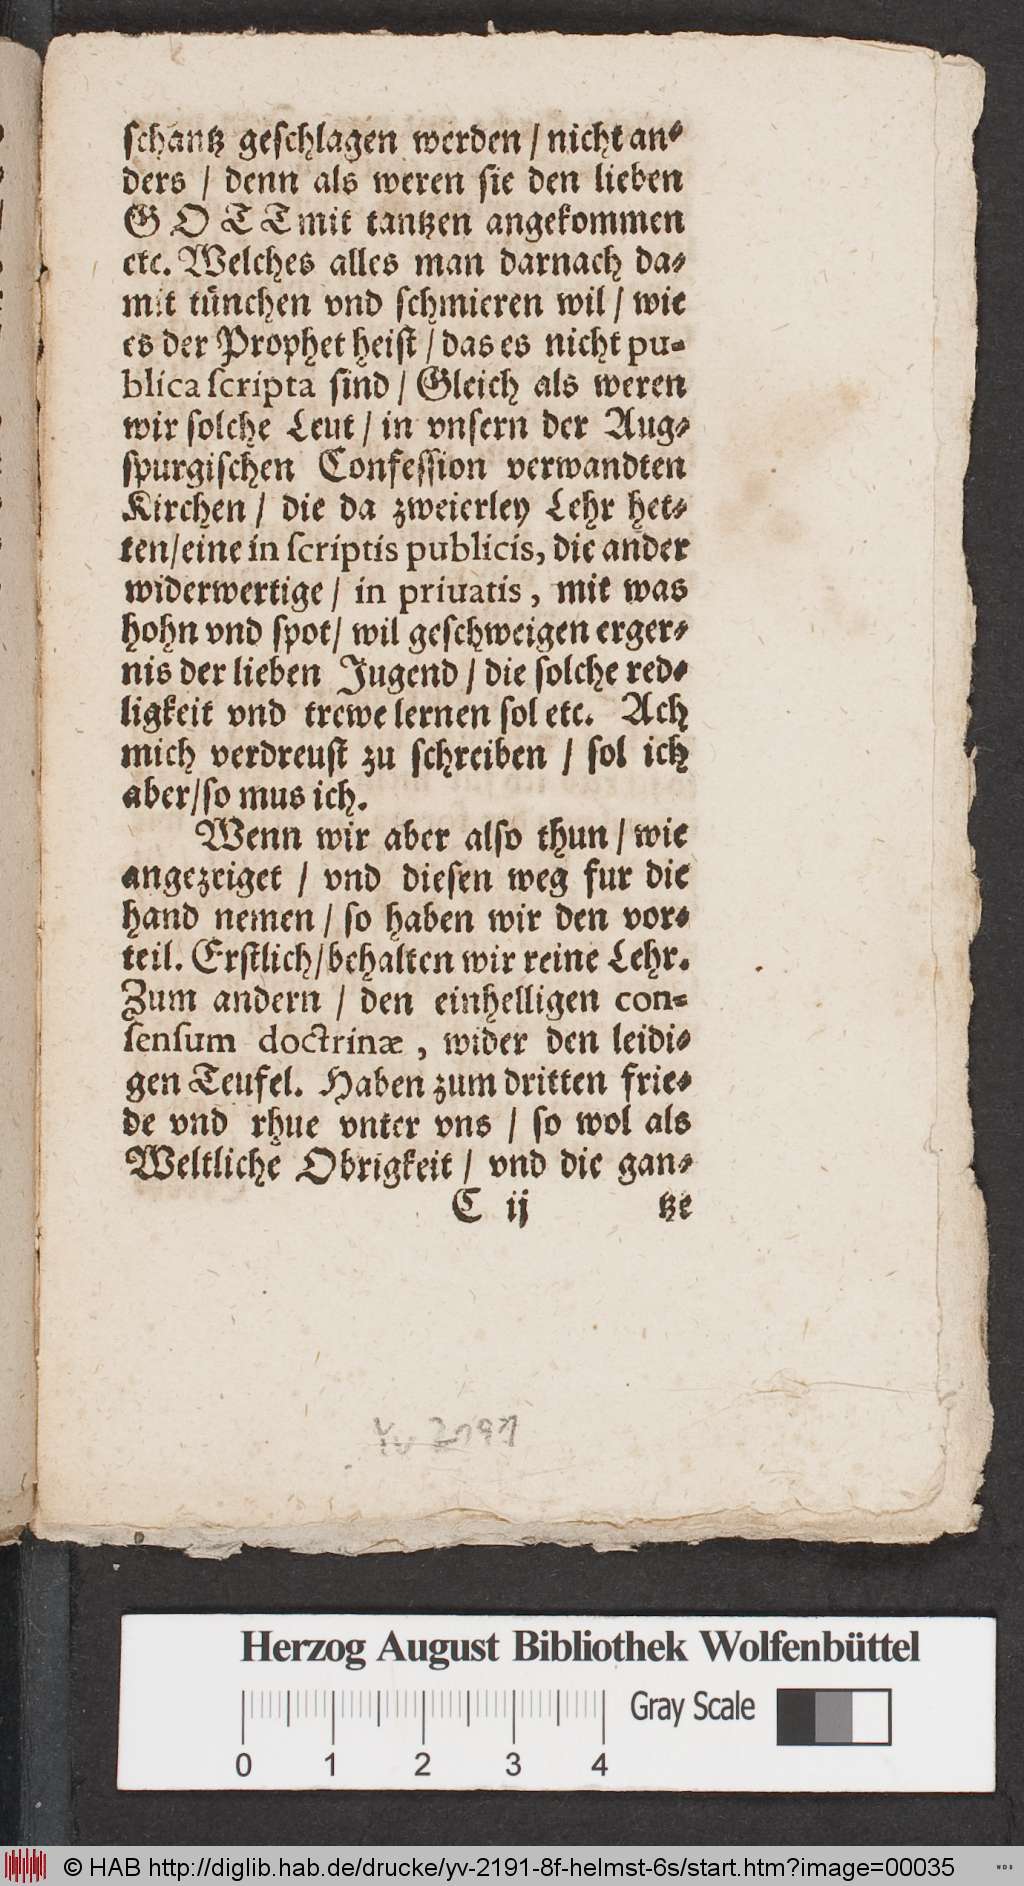 ſchantz geſchlagen werden / nicht an⸗
ders / denn als weren ſie den lieben
GOTT mit tantzen angekommen
etc. Welches alles man darnach da⸗
mit tünchen vnd ſchmieren wil / wie
es der Prophet heiſt / das es nicht pu⸗
blica ſcripta ſind / Gleich als weren
wir ſolche Leut / in vnſern der Aug⸗
ſpurgiſchen Confeſſion verwandten
Kirchen / die da zweierley Lehr het⸗
ten / eine in ſcriptis publicis, die ander
widerwertige / in priuatis, mit was
hohn vnd ſpot / wil geſchweigen erger⸗
nis der lieben Jugend / die ſolche red⸗
ligkeit vnd trewe lernen ſol etc. Ach
mich verdreuſt zu ſchreiben / ſol ich
aber / ſo mus ich.
Wenn wir aber alſo thun / wie
angezeiget / vnd dieſen weg fur die
hand nemen / ſo haben wir den vor⸗
teil. Erſtlich / behalten wir reine Lehr.
Zum andern / den einhelligen con⸗
ſenſum doctrinæ, wider den leidi⸗
gen Teufel. Haben zum dritten frie⸗
de vnd rhue vnter vns / ſo wol als
Weltliche Obrigkeit / vnd die gan⸗
C ij tze
Yv 2191
Herzog August Bibliothek Wolfenbüttel
Gray Scale
0 1 2 3 4
© HAB http://diglib.hab.de/drucke/yv-2191-8f-helmst-6s/start.htm?image=00035